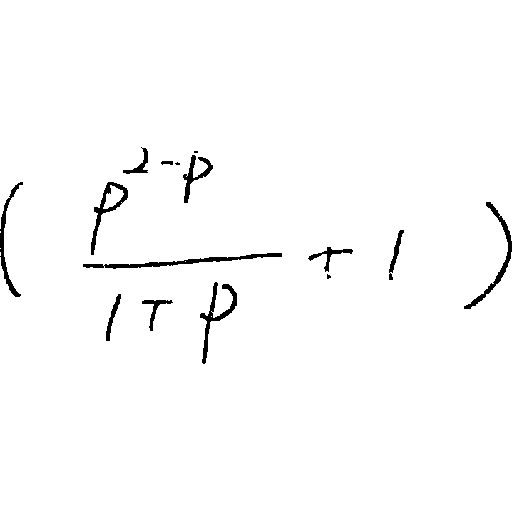 \left( \frac{p^{2-p}}{1+p} + 1 \right)